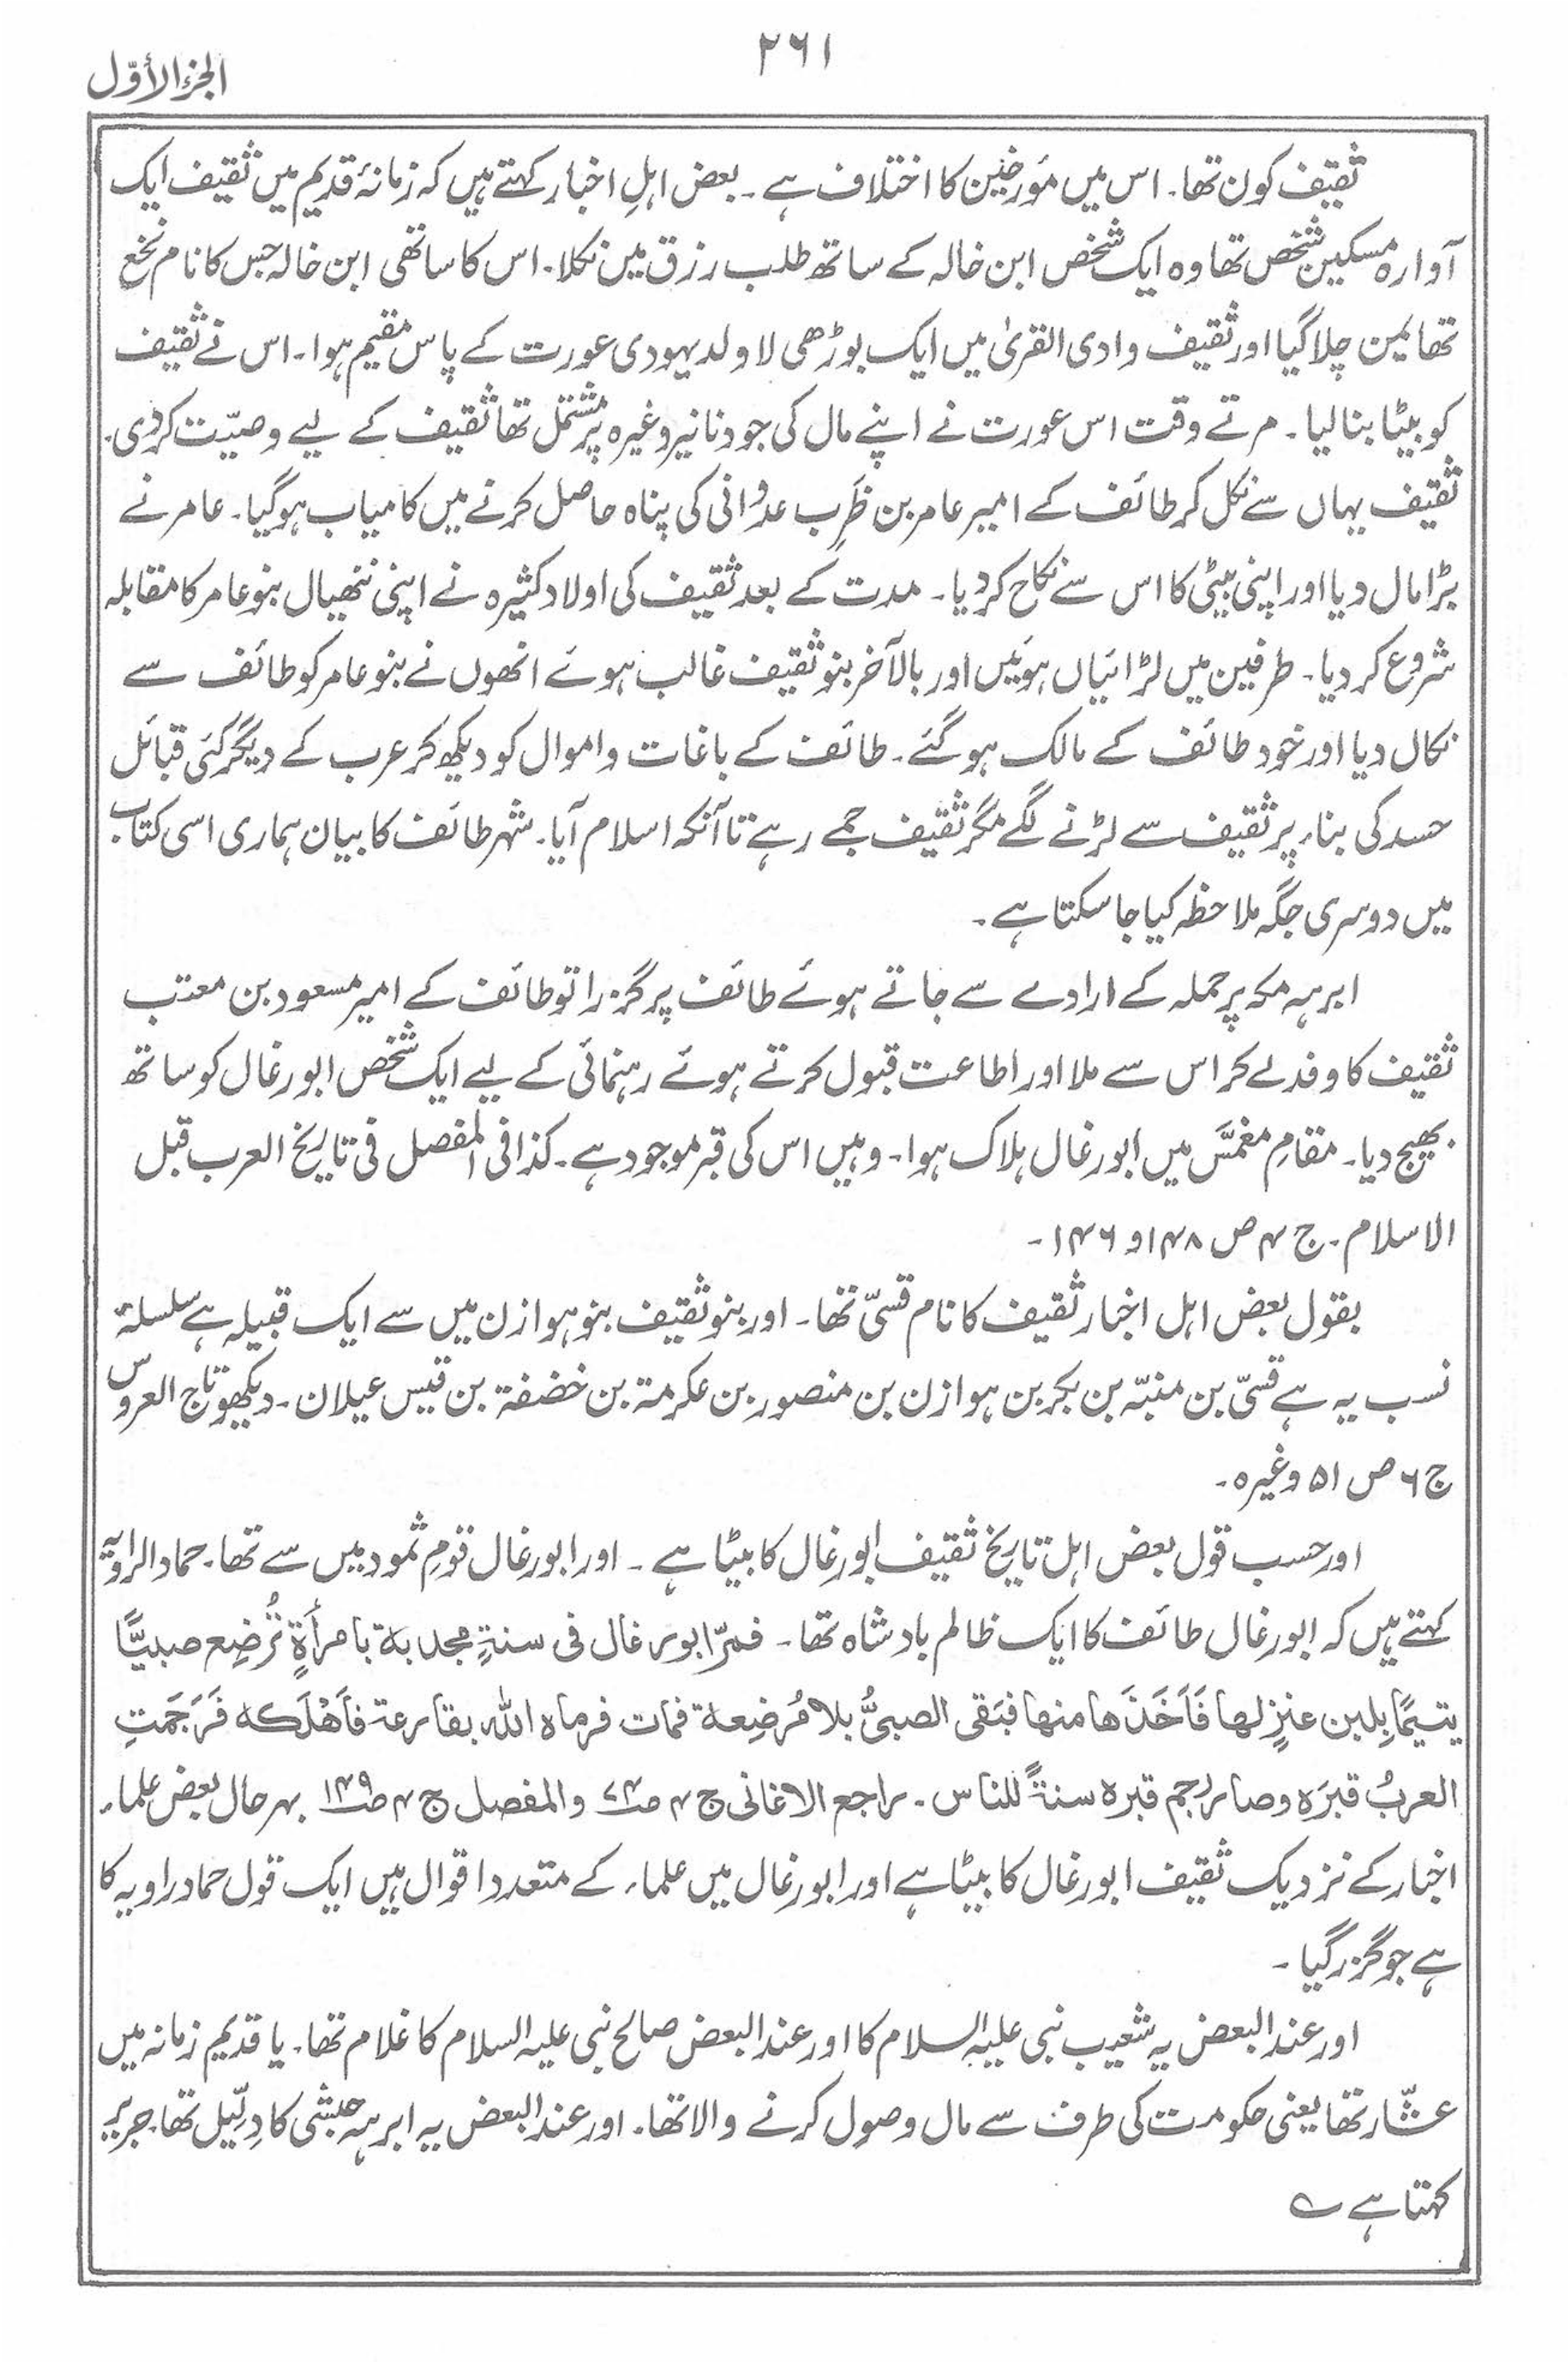 ۲۶۱
الجزء الأوّل
ثقیف کون تھا۔ اس میں مؤرخین کا اختلاف ہے۔ بعض اہلِ اخبار کہتے ہیں کہ زمانۂ قدیم میں ثقیف ایک
آوارہ مسکین شخص تھا وہ ایک شخص ابن خالہ کے ساتھ طلب رزق میں نکلا۔ اس کا ساتھی ابن خالہ جس کا نام نخع
تھا یمن چلا گیا اور ثقیف وادی القریٰ میں ایک بوڑھی لاولد یہودی عورت کے پاس مقیم ہوا۔ اس نے ثقیف
کو بیٹا بنا لیا۔ مرتے وقت اس عورت نے اپنے مال کی جو دنانیر وغیرہ پر مشتمل تھا ثقیف کے لیے وصیّت کر دی۔
ثقیف یہاں سے نکل کر طائف کے امیر عامر بن ظَرِب عدوانی کی پناہ حاصل کرنے میں کامیاب ہوگیا۔ عامر نے
بڑا مال دیا اور اپنی بیٹی کا اس سے نکاح کر دیا۔ مدت کے بعد ثقیف کی اولاد کثیرہ نے اپنی ننھیال بنو عامر کا مقابلہ
شروع کر دیا۔ طرفین میں لڑائیاں ہوئیں اور بالآخر بنو ثقیف غالب ہوئے انھوں نے بنو عامر کو طائف سے
نکال دیا اور خود طائف کے مالک ہوگئے۔ طائف کے باغات و اموال کو دیکھ کر عرب کے دیگر کئی قبائل
حسد کی بناء پر ثقیف سے لڑنے لگے مگر ثقیف جمے رہے تا آنکہ اسلام آیا۔ شہر طائف کا بیان ہماری اسی کتاب
میں دوسری جگہ ملاحظہ کیا جا سکتا ہے۔
ابرہہ مکہ پر حملہ کے ارادے سے جاتے ہوئے طائف پر گزرا تو طائف کے امیر مسعود بن معتب
ثقیف کا وفد لے کر اس سے ملا اور اطاعت قبول کرتے ہوئے رہنمائی کے لیے ایک شخص ابو رغال کو ساتھ
بھیج دیا۔ مقامِ مغمَّس میں ابو رغال ہلاک ہوا۔ وہیں اس کی قبر موجود ہے۔ کذا فی المفصل فی تاریخ العرب قبل
الاسلام۔ ج ۴ ص ۱۴۸ و ۱۴۶۔
بقول بعض اہل اخبار ثقیف کا نام قسیّ تھا۔ اور بنو ثقیف بنو ہوازن میں سے ایک قبیلہ ہے سلسلۂ
نسب یہ ہے قسیّ بن منبّہ بن بکر بن ہوازن بن منصور بن عکرمۃ بن خضفۃ بن قیس عیلان۔ دیکھو تاج العروس
ج ۶ ص ۵۱ وغیرہ۔
اور حسب قول بعض اہل تاریخ ثقیف ابو رغال کا بیٹا ہے۔ اور ابو رغال قومِ ثمود میں سے تھا۔ حماد الراویۃ
کہتے ہیں کہ ابو رغال طائف کا ایک ظالم بادشاہ تھا۔ فمرّ ابو رغال فی سنةٍ مجدبة بامرأةٍ تُرضِع صبیًّا
یتیمًا بِلبن عنزٍ لها فَاَخَذَها منها فبَقی الصبیُّ بلا مُرضِعة فمات فرماه اللہ بقارعة فاَهْلَکه فَرَجَمتِ
العربُ قبرَه وصار رجم قبره سنةً للناس۔ راجع الاغانی ج ۴ ص ۷۴ والمفصل ج ۴ ص ۱۴۹ بہر حال بعض علماء
اخبار کے نزدیک ثقیف ابو رغال کا بیٹا ہے اور ابو رغال میں علماء کے متعدد اقوال ہیں ایک قول حماد راویہ کا
ہے جو گزر گیا۔
اور عند البعض یہ شعیب نبی علیہ السلام کا اور عند البعض صالح نبی علیہ السلام کا غلام تھا۔ یا قدیم زمانہ میں
عشّار تھا یعنی حکومت کی طرف سے مال وصول کرنے والا تھا۔ اور عند البعض یہ ابرہہ حبشی کا دِلّیل تھا۔ جریر
کہتا ہے ؎